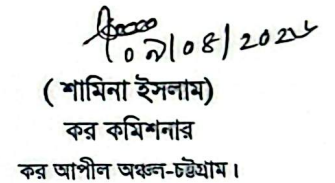 ০৯/০৪/২০২৬
(শামিনা ইসলাম)
কর কমিশনার
কর আপীল অঞ্চল-চট্টগ্রাম।